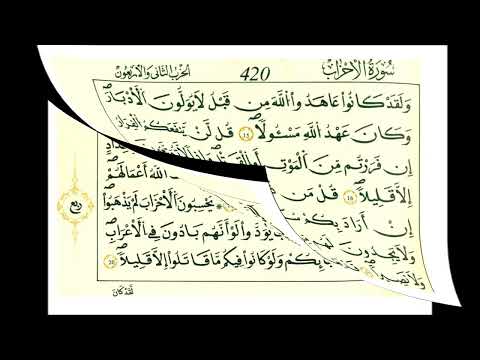 سُورَةُ الْأَحْزَابِ 420 الحزب الثاني والأربعون
وَلَقَدْ كَانُوا عَاهَدُوا اللَّهَ مِن قَبْلُ لَا يُوَلُّونَ الْأَدْبَارَ
وَكَانَ عَهْدُ اللَّهِ مَسْئُولًا ١٥ قُل لَّن يَنفَعَكُمُ الْفِرَارُ
إِن فَرَرْتُم مِّنَ الْمَوْتِ أَوِ الْقَتْلِ
إِلَّا قَلِيلًا ١٦ قُلْ مَن اللَّهُ أَعْمَالَهُمْ
إِنْ أَرَادَ بِكُمْ يَحْسَبُونَ الْأَحْزَابَ لَمْ يَذْهَبُوا
وَلَا يَجِدُونَ يَوَدُّوا لَوْ أَنَّهُم بَادُونَ فِي الْأَعْرَابِ
وَلَا نَصِيرًا وَلَوْ كَانُوا فِيكُم مَّا قَاتَلُوا إِلَّا قَلِيلًا ٢٠
ربع
لَّقَدْ كَانَ